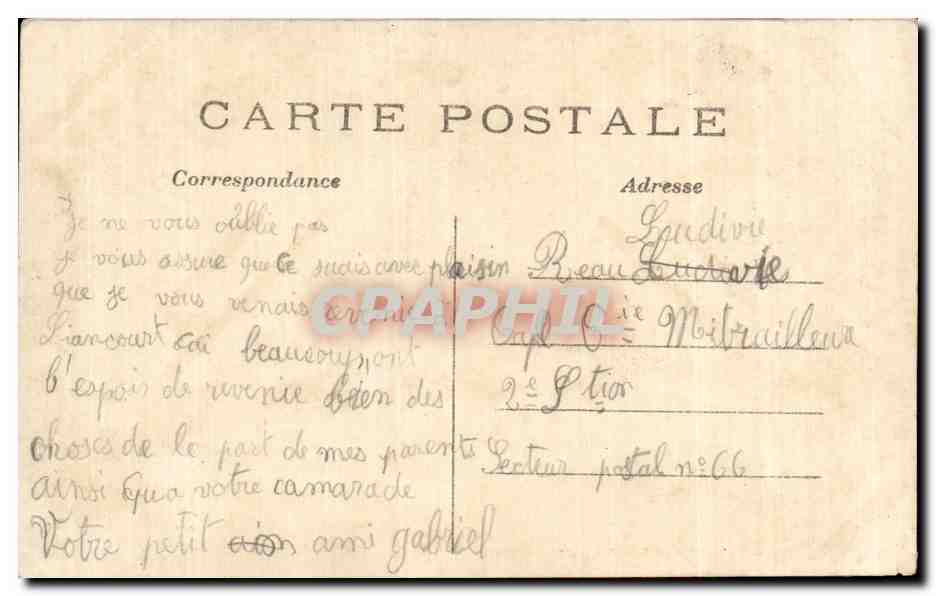 CARTE POSTALE
Correspondance
Adresse
Je ne vous oûblie pas
je vous assure que ce suais avec plaisin
que je vous venais revenir a
Liancourt cai beaucoup, ont
l'espois de revenie bien des
choses de le part de mes parents
ainsi qua votre camarade
Votre petit ami gabriel
Ludivie
Reau
Capl Cie Mitrailleus
2e Stion
Secteur postal n° 66
CPAPHIL